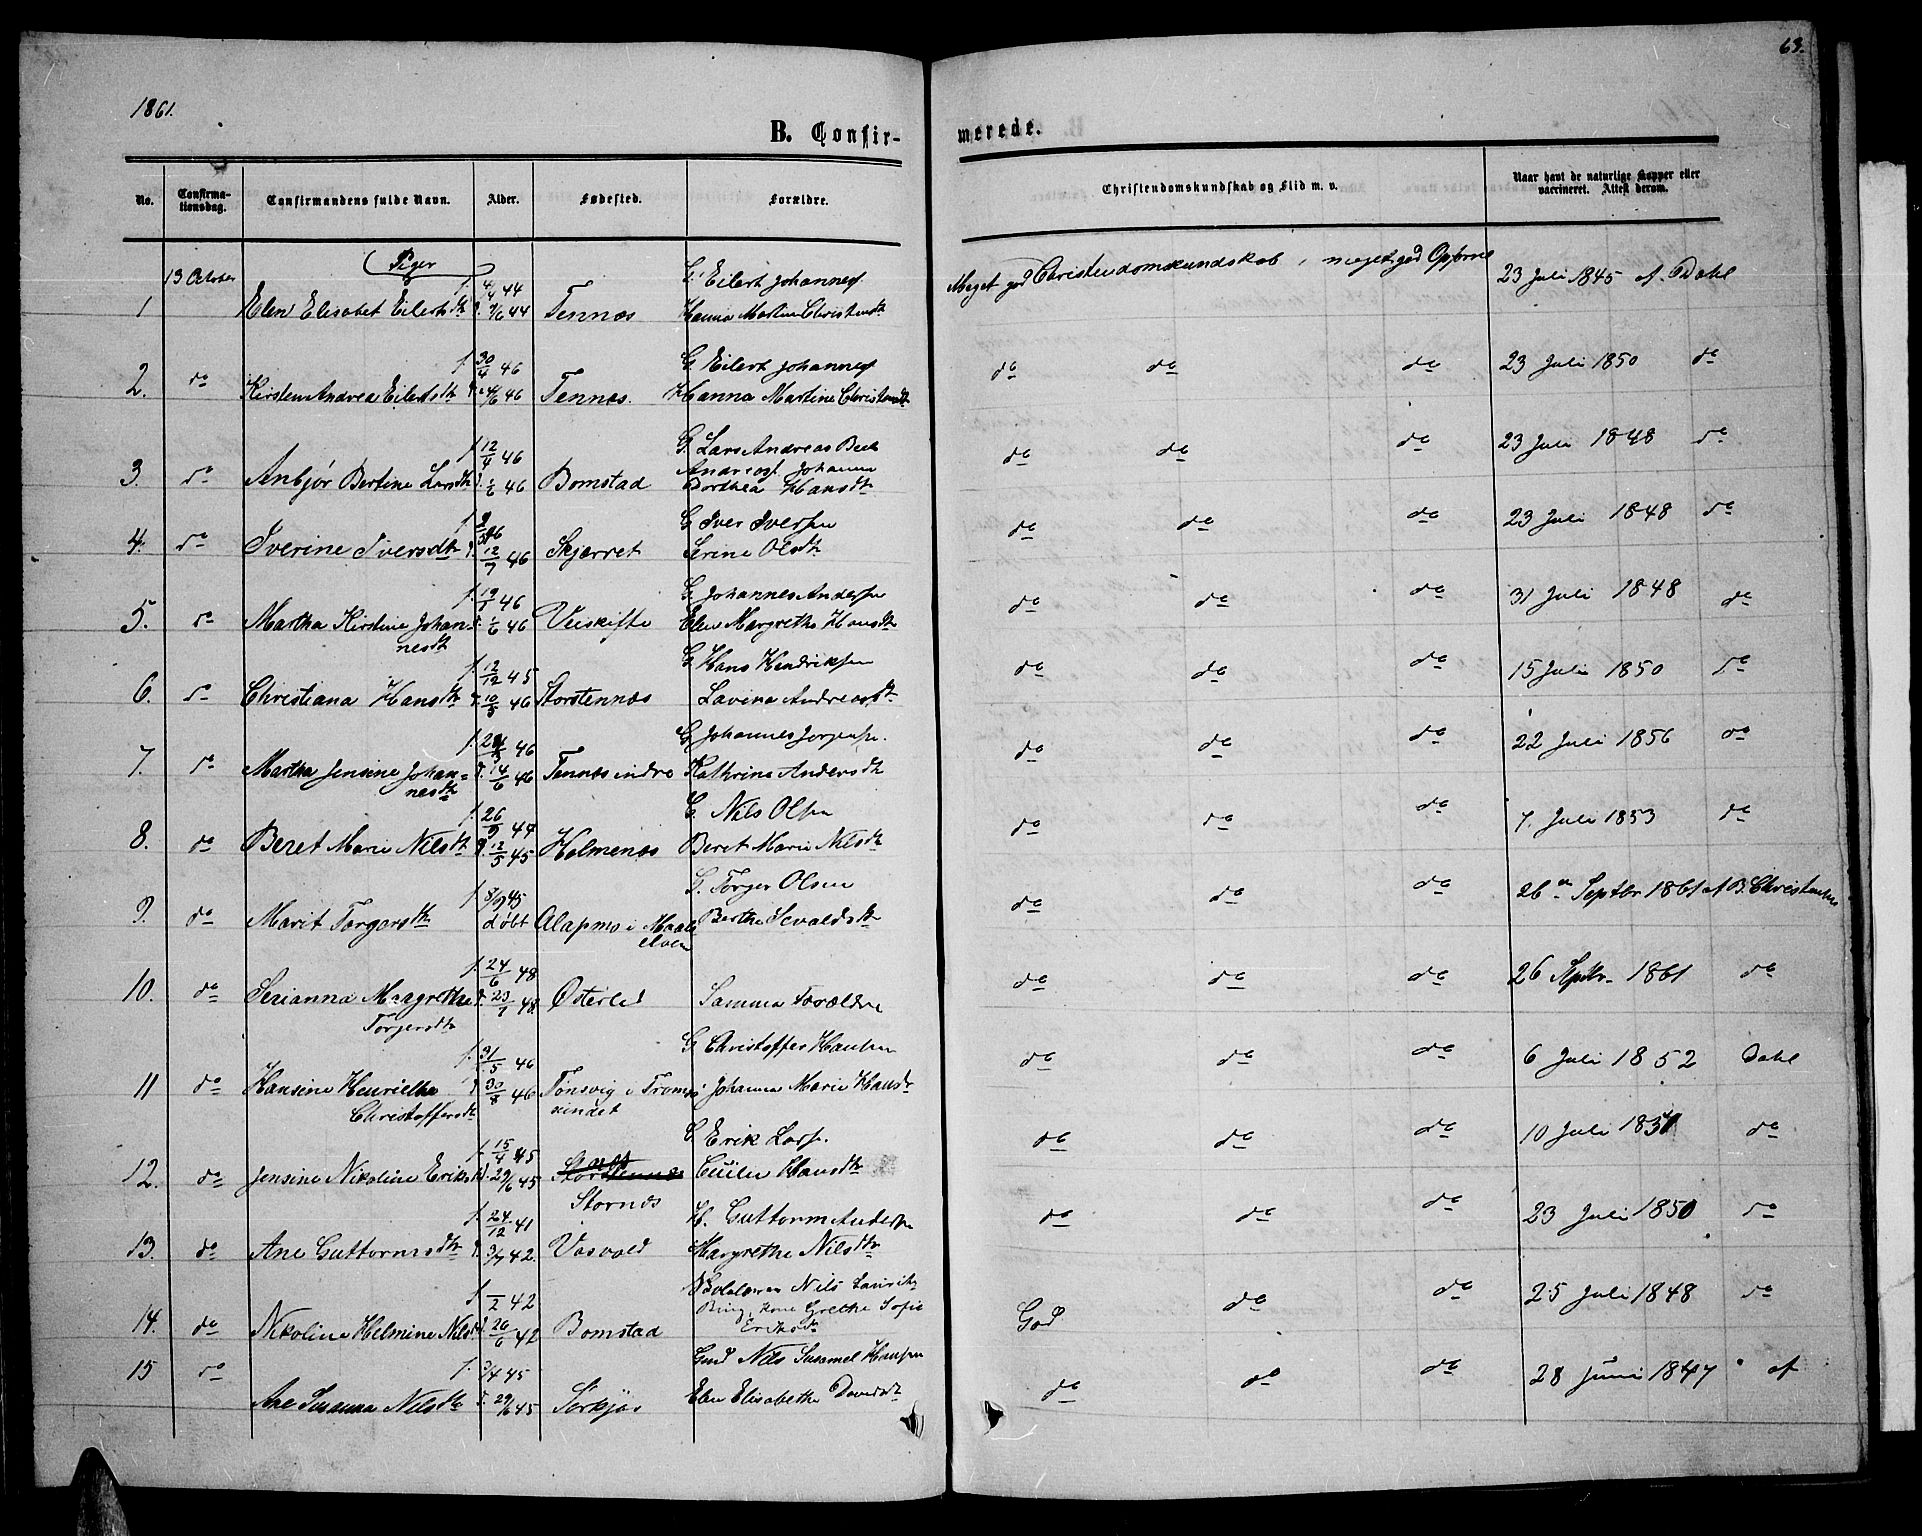 1861.
63.
B. Confir-
merede.
No.
Confirma-
tionsdag.
Confirmandens fulde Navn.
Alder.
Fødested.
Forældre.
Christendomskundskab og Flid m. v.
Naar havt de naturlige Kopper eller
vaccineret. Attest derom.
Piger
1 13 October Elen Elisabet Eilertsdtr f. 4/4 44 Tennæs G. Eilert Johannes
Hanna Martine Christensdtr Meget god Christendomskundskab, meget god Opførsel 23 Juli 1845 af Dahl
2. do Kirsten Andrea Eilertsdtr f. 30/4 46 Tennæs. G Eilert Johannes
Hanna Martine Christensdtr do do do 23 Juli 1850 do
3. do Anbjør Bertine Larsdtr f. 12/4 46 d. 1/6 46 Bomstad G. Lars Andreas Beck
Andreas Johanna
Dorthea Hansdtr do do do 23 Juli 1848 do
4. do Iverine Iversdtr d. 12/7 46 Skjærret G Iver Iversen
Serine Olsdtr do do do 23 Juli 1848 do
5. do Martha Kirstine Johan-
nesdtr 46 d. 1/6 46 Veiskifte G. Johannes Andersen
Elen Margrethe Hansdtr do do do 31 Juli 1848 do
6. do Christiana Hansdtr f. 12/12 45 d. 10/5 46 Storstennæs G Hans Hendriksen
Lavina Andreasdtr do do do 15 Juli 1850 do
7. do Martha Jensine Johan=
nesdtr 46 d. 14/6 46 Tennæs indre G Johannes Jørgensen.
Kathrine Andersdtr do do do 22 Juli 1856 do
8. do Beret Marie Nilsdtr f. 26/9 44 d. 12/5 45 Holmenæs G. Nils Olsen
Beret Marie Nilsdtr do do do 7. Juli 1853 do
9. do Marit Torgersdtr f. 8/9 45
døbt Alapmo i Maals
elven G. Torger Olsen
Berthe Sevaldsdtr do do do 26 Septbr 1861 af B. Christensen
10. do Serianna Margrethe
Torgersdtr f. 24/6 48 d. 23/7 48 Østerli Samma Forældre do do do 26 Septbr 1861 do
11 do Hansine Henriette
Christoffersdtr f. 31/5 46 d. 30/8 46 Tønsvig i Tromsø
sundet G Christoffer Hansen
Johanna Marie Hansdtr do do do 6 Juli 1852 Dahl
12. do Jensine Nikoline Eriksdtr f. 15/4 45 d. 29/6 45 Stornæs G Erik Larsen.
Cicilie Hansdtr do do do 10 Juli 1851 do
13. do Ane Guttormsdtr f. 24/12 41 d. 3/7 42. Vasvold H. Guttorm Andersen
Margrethe Nilsdtr do do do 23 Juli 1850 do
14. do Nikoline Helmine Nilsdtr f –/2 42 d. 26/6 42 Bomstad Nils Laurits
Bing, Kone Grethe Sofie
Eriksdtr God do do 25 Juli 1848 do
15 do Ane Susanna Nilsdtr f. 3/4 45 d. 29/6 45 Sørkjos Gmd Nils Susamel Hansen
Elen Elisabethe Davidsdtr do do do 28 Juni 1847 af